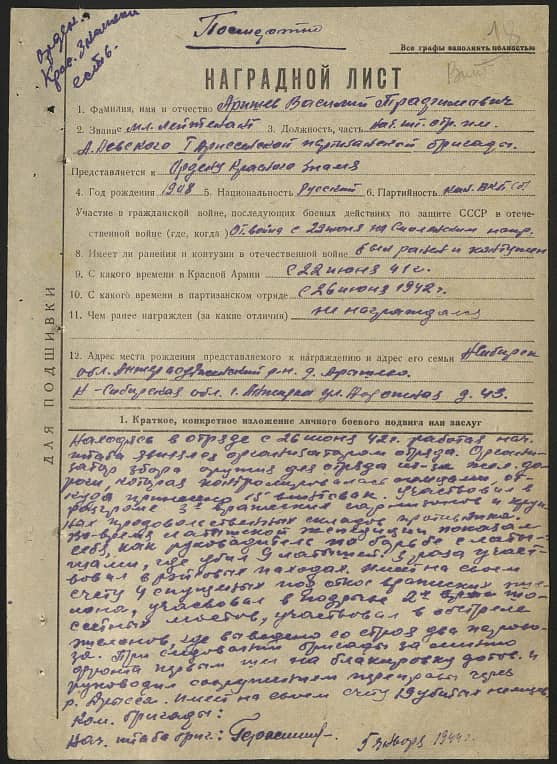 Орден.
Крас. Знамени
есть.
Посмертно
18
Все графы заполнять полностью
НАГРАДНОЙ ЛИСТ
1. Фамилия, имя и отчество Василий
2. Звание мл. лейтенант 3. Должность, часть нач. шт. отр. им.
А. Невского партизанской бригады.
Представляется к Ордену Красного Знамя
4. Год рождения 1908 5. Национальность Русский 6. Партийность кан. ВКП(б)
Участие в гражданской войне, последующих боевых действиях по защите СССР в отече-
ственной войне (где, когда) От. война с 29 июня на Смоленском напр.
8. Имеет ли ранения и контузии в отечественной войне был ранен и контужен
9. С какого времени в Красной Армии с 22 июня 41 г.
10. С какого времени в партизанском отряде с 26 июня 1942 г.
11. Чем ранее награжден (за какие отличия) не награждался
12. Адрес места рождения представляемого к награждению и адрес его семьи Н-Сибирск
обл. р-н. д.
Н-Сибирская обл. г. ул. д. 43.
ДЛЯ ПОДШИВКИ
1. Краткое, конкретное изложение личного боевого подвига или заслуг
Находясь в отряде с 26 июня 42 г. работая нач.
штаба явился организатором отряда. Органи-
затор збора оружия для отряда из-за жел. до-
роги, которая контролировалась немцами, от-
куда принесено 15 винтовок. Участвовал в
разгроме 3х вражеских гарнизонов и круп-
ных продовольственных складов противника.
Во время латышской экспедиции показал
себя, как руководитель по борьбе с латы-
шами, где убил 9 латышей. 3 раза участ-
вовал в рэйдовых походах. Имеет на своем
счету 4 спущенных под откос вражеских эше-
лона, участвовал в подрыве 2х шо-
ссейных мостов, участвовал в обстреле
эшелонов, где выведено со строя два парово-
за. При следовании бригады за линию
фронта первым шел на блакировку дотов. и
руководил сооружением переправы через
р. Имеет на своем счету 19 убитых немцев.
Ком. бригады:
Нач. штаба бриг.:
5 января 1944 г.